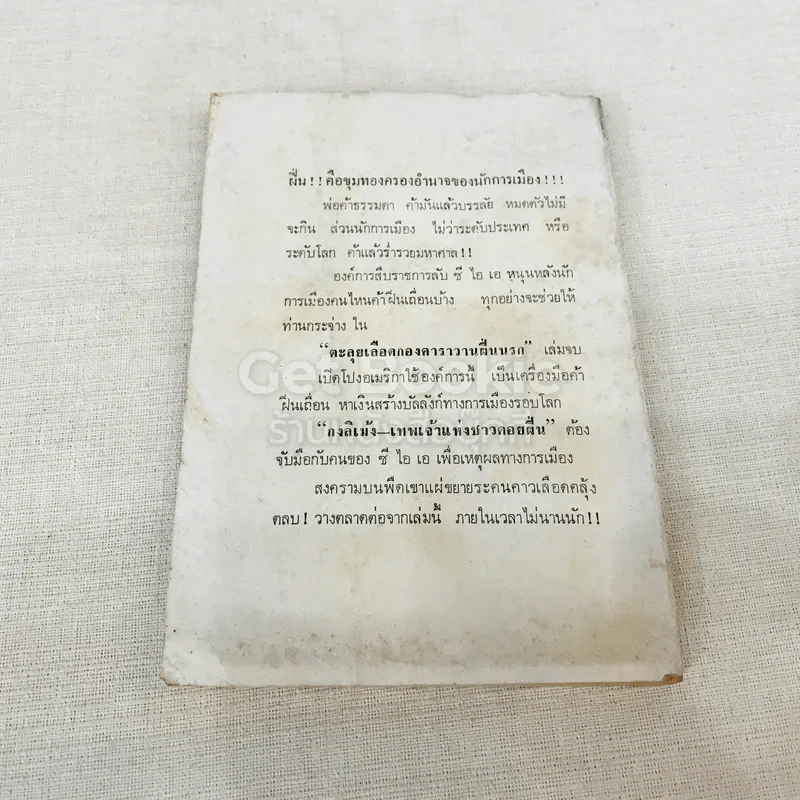 ฝิ่น!! คือขุมทองครองอำนาจของนักการเมือง!!!
พ่อค้าธรรมดา ค้ามันแล้วบรรลัย หมดตัวไม่มี
จะกิน ส่วนนักการเมือง ไม่ว่าระดับประเทศ หรือ
ระดับโลก ค้าแล้วร่ำรวยมหาศาล!!
องค์การสืบราชการลับ ซี ไอ เอ หนุนหลังนัก
การเมืองคนไหนค้าฝิ่นเถื่อนบ้าง ทุกอย่างจะช่วยให้
ท่านกระจ่าง ใน
“ตะลุยเลือดกองคาราวานฝิ่นนรก” เล่มจบ
เปิดโปงอเมริกาใช้องค์การนี้ เป็นเครื่องมือค้า
ฝิ่นเถื่อน หาเงินสร้างบัลลังก์ทางการเมืองรอบโลก
“กงลิเม้ง—เทพเจ้าแห่งชาวดอยฝิ่น” ต้อง
จับมือกับคนของ ซี ไอ เอ เพื่อเหตุผลทางการเมือง
สงครามบนพืดเขาแผ่ขยายระคนคาวเลือดคลุ้ง
ตลบ! วางตลาดต่อจากเล่มนี้ ภายในเวลาไม่นานนัก!!